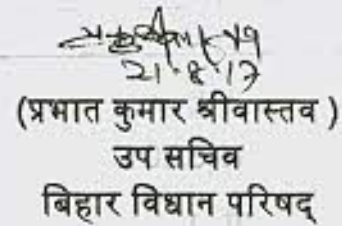 21.8.17
(प्रभात कुमार श्रीवास्तव )
उप सचिव
बिहार विधान परिषद्